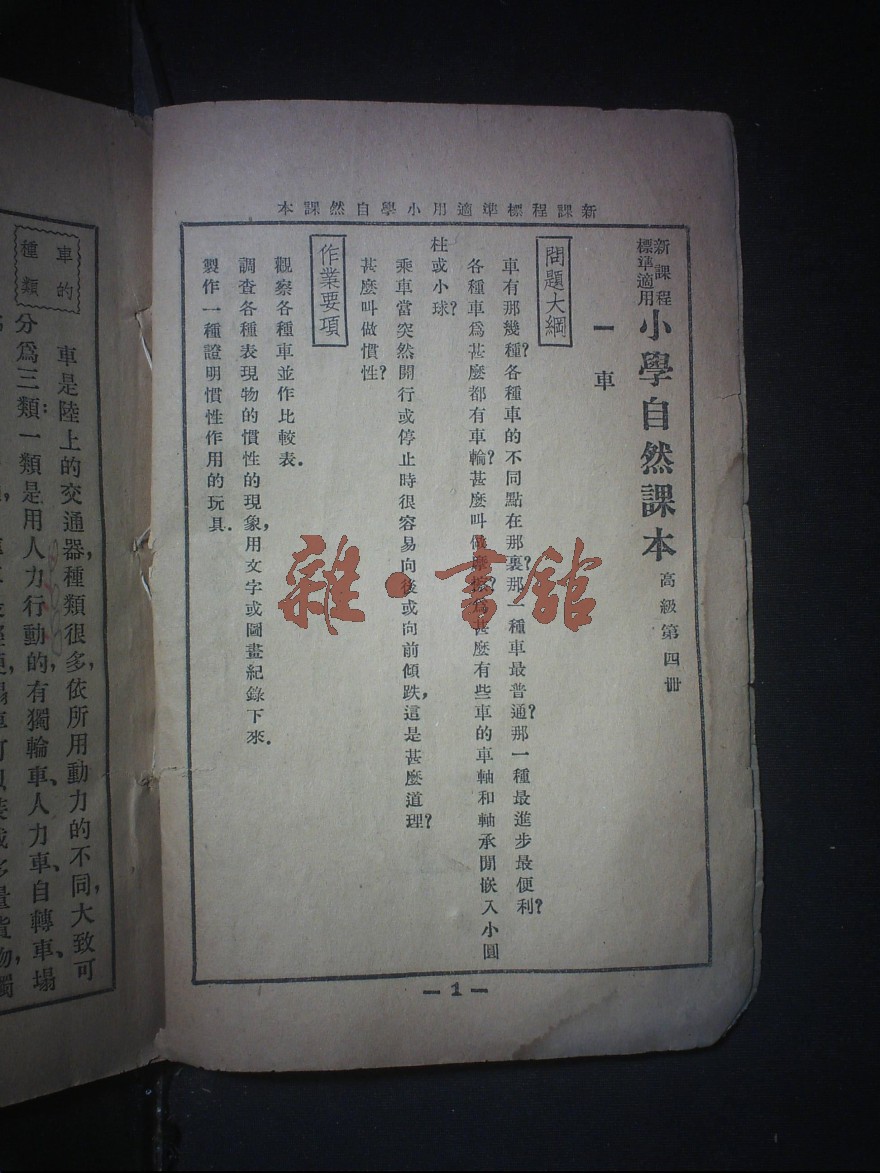 新課程標準適用小學自然課本
新課程標準適用 小學自然課本 高級第四冊
一 車
問題大綱
車有那幾種?各種車的不同點在那裏?那一種車最普通?那一種最進步最便利?
各種車爲甚麽都有車輪?甚麽叫做摩擦?爲甚麽有些車的車軸和軸承間嵌入小圓
柱或小球?
乘車當突然開行或停止時很容易向後或向前傾跌,這是甚麽道理?
甚麽叫做慣性?
作業要項
觀察各種車並作比較表.
調查各種表現物的慣性的現象,用文字或圖畫紀錄下來.
製作一種證明慣性作用的玩具.
— 1 —
車的
種類
車是陸上的交通器,種類很多,依所用動力的不同,大致可
分爲三類:一類是用人力行動的,有獨輪車、人力車、自轉車、塌
雜·書舘